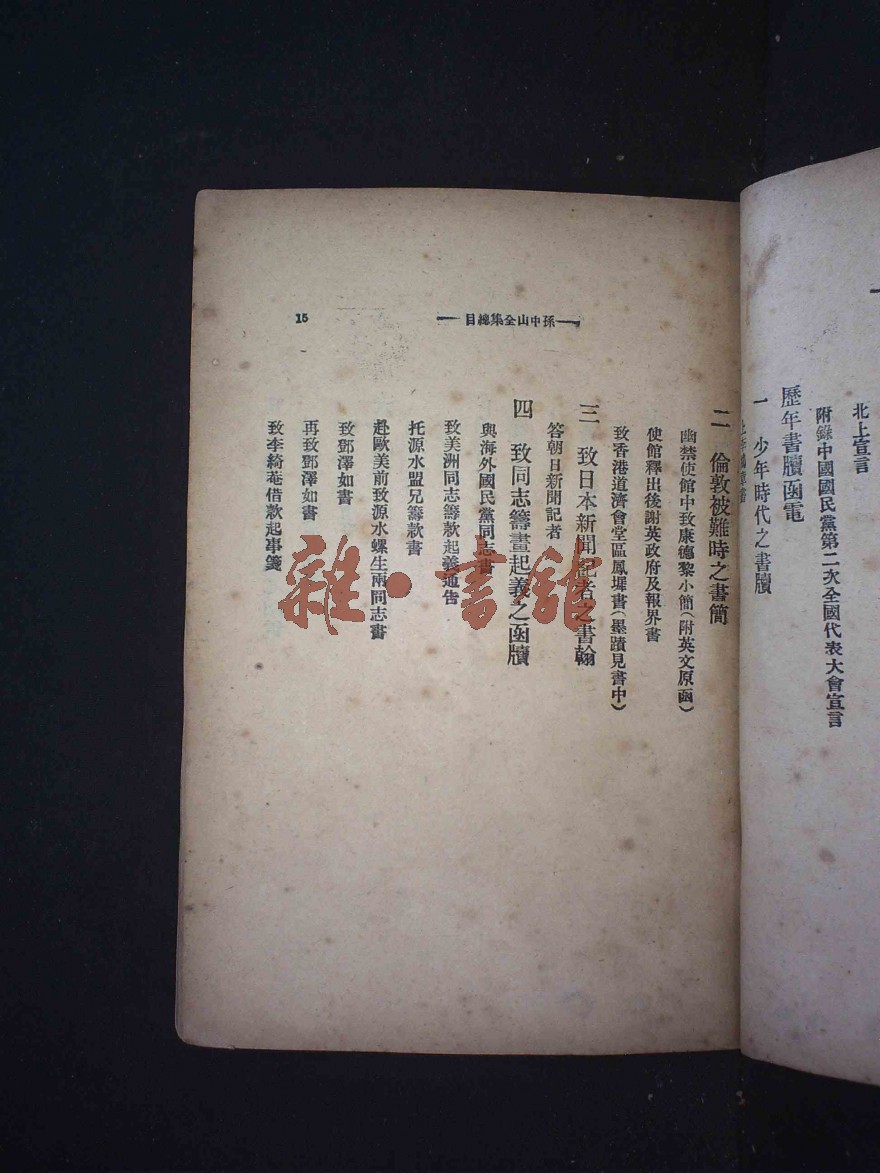 北上宣言
附錄中國國民黨第二次全國代表大會宣言
歷年書牘函電
一 少年時代之書牘
上李鴻章書
孫中山全集總目
15
二 倫敦被難時之書簡
幽禁使館中致康德黎小簡(附英文原函)
使館釋出後謝英政府及報界書
致香港道濟會堂區鳳墀書(墨蹟見書中)
三 致日本新聞記者之書翰
答朝日新聞記者
四 致同志籌畫起義之函牘
與海外國民黨同志書
致美洲同志籌款起義通告
托源水盟兄籌款書
赴歐美前致源水螺生兩同志書
致鄧澤如書
再致鄧澤如書
致李綺菴借款起事箋
雜·書館